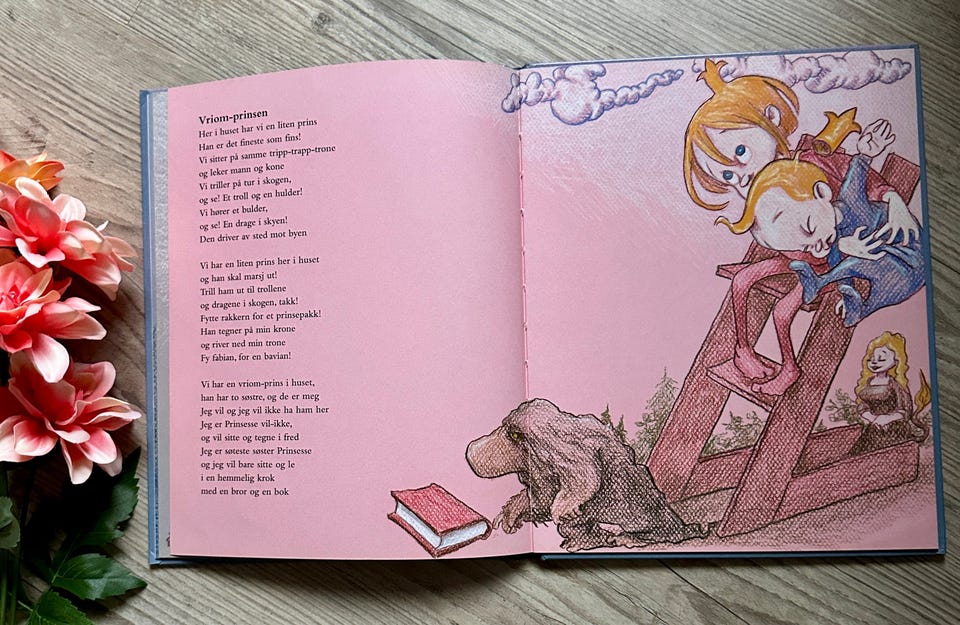 Vriom-prinsen
Her i huset har vi en liten prins
Han er det fineste som fins!
Vi sitter på samme tripp-trapp-trone
og leker mann og kone
Vi triller på tur i skogen,
og se! Et troll og en hulder!
Vi hører et bulder,
og se! En drage i skyen!
Den driver av sted mot byen
Vi har en liten prins her i huset
og han skal marsj ut!
Trill ham ut til trollene
og dragene i skogen, takk!
Fytte rakkern for et prinsepakk!
Han tegner på min krone
og river ned min trone
Fy fabian, for en bavian!
Vi har en vriom-prins i huset,
han har to søstre, og de er meg
Jeg vil og jeg vil ikke ha ham her
Jeg er Prinsesse vil-ikke,
og vil sitte og tegne i fred
Jeg er søteste søster Prinsesse
og jeg vil bare sitte og le
i en hemmelig krok
med en bror og en bok